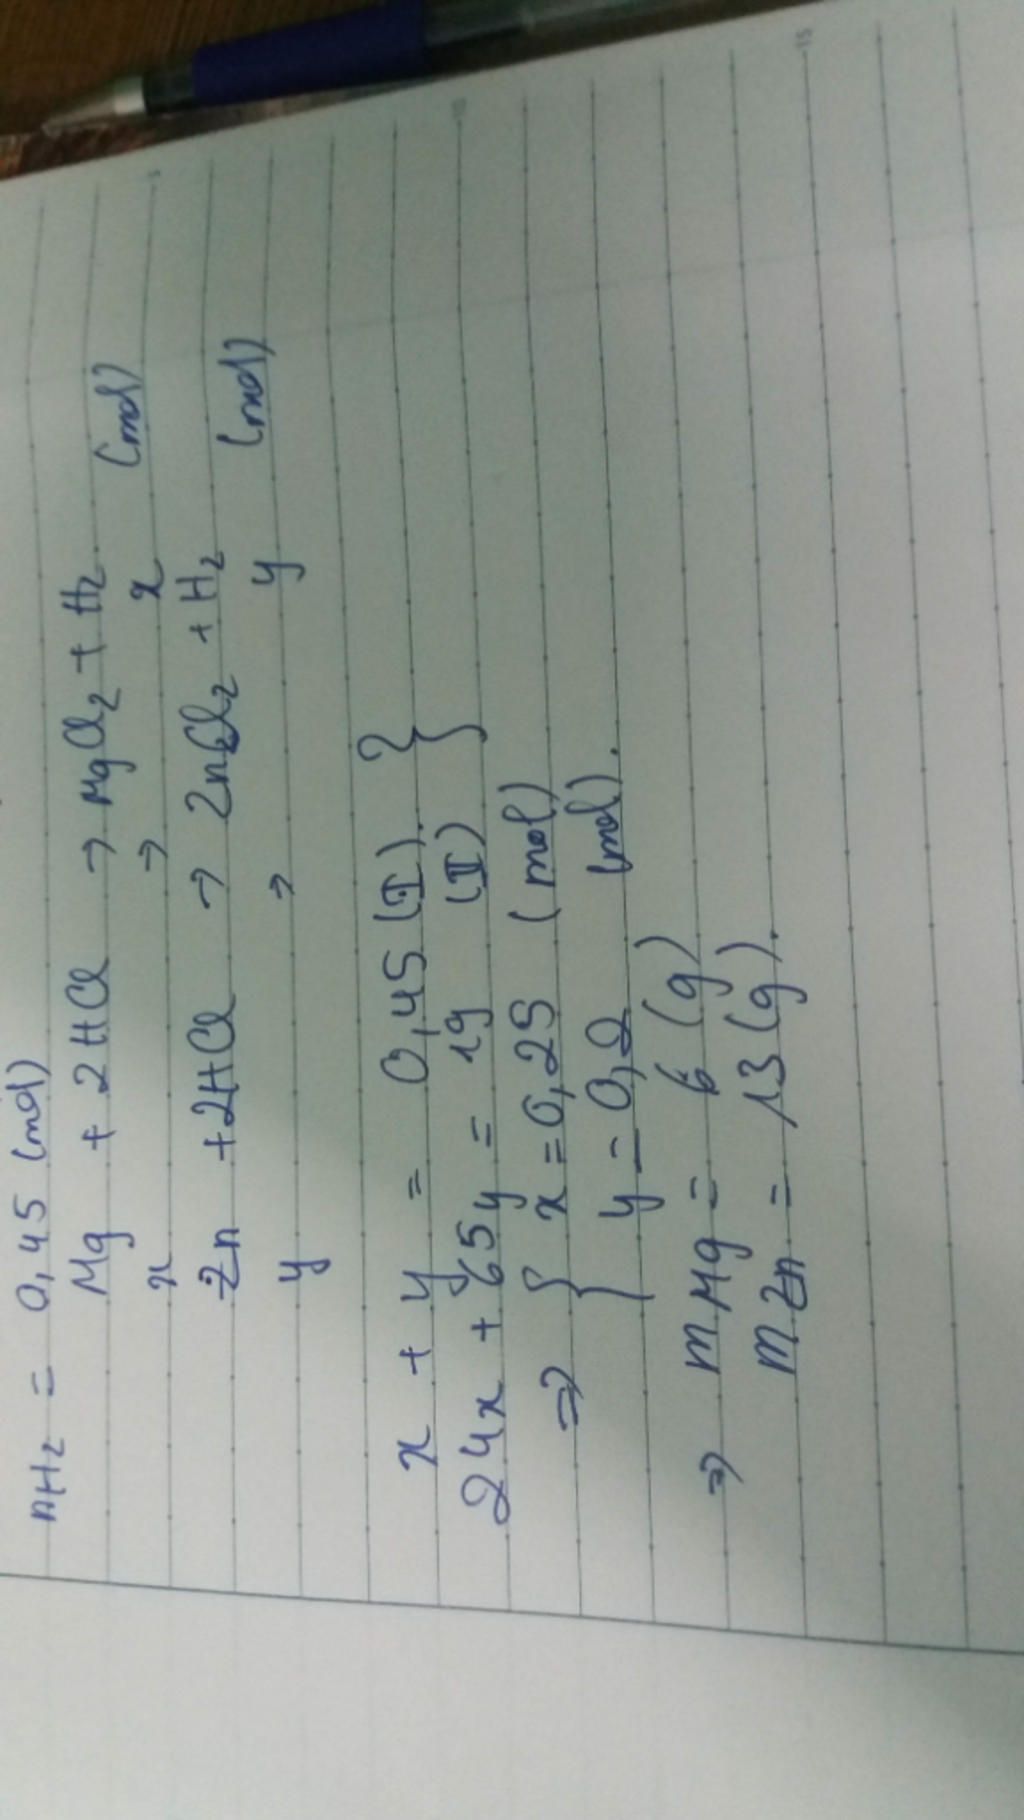 nH2 = 0,45 (mol)
Mg + 2HCl → MgCl2 + H2
x → x (mol)
Zn + 2HCl → ZnCl2 + H2
y → y (mol)
x + y = 0,45 (I).
24x + 65y = 19 (II)
⇒ { x = 0,25 (mol)
y = 0,2 (mol).
⇒ mMg = 6 (g)
mZn = 13 (g).
5
10
15